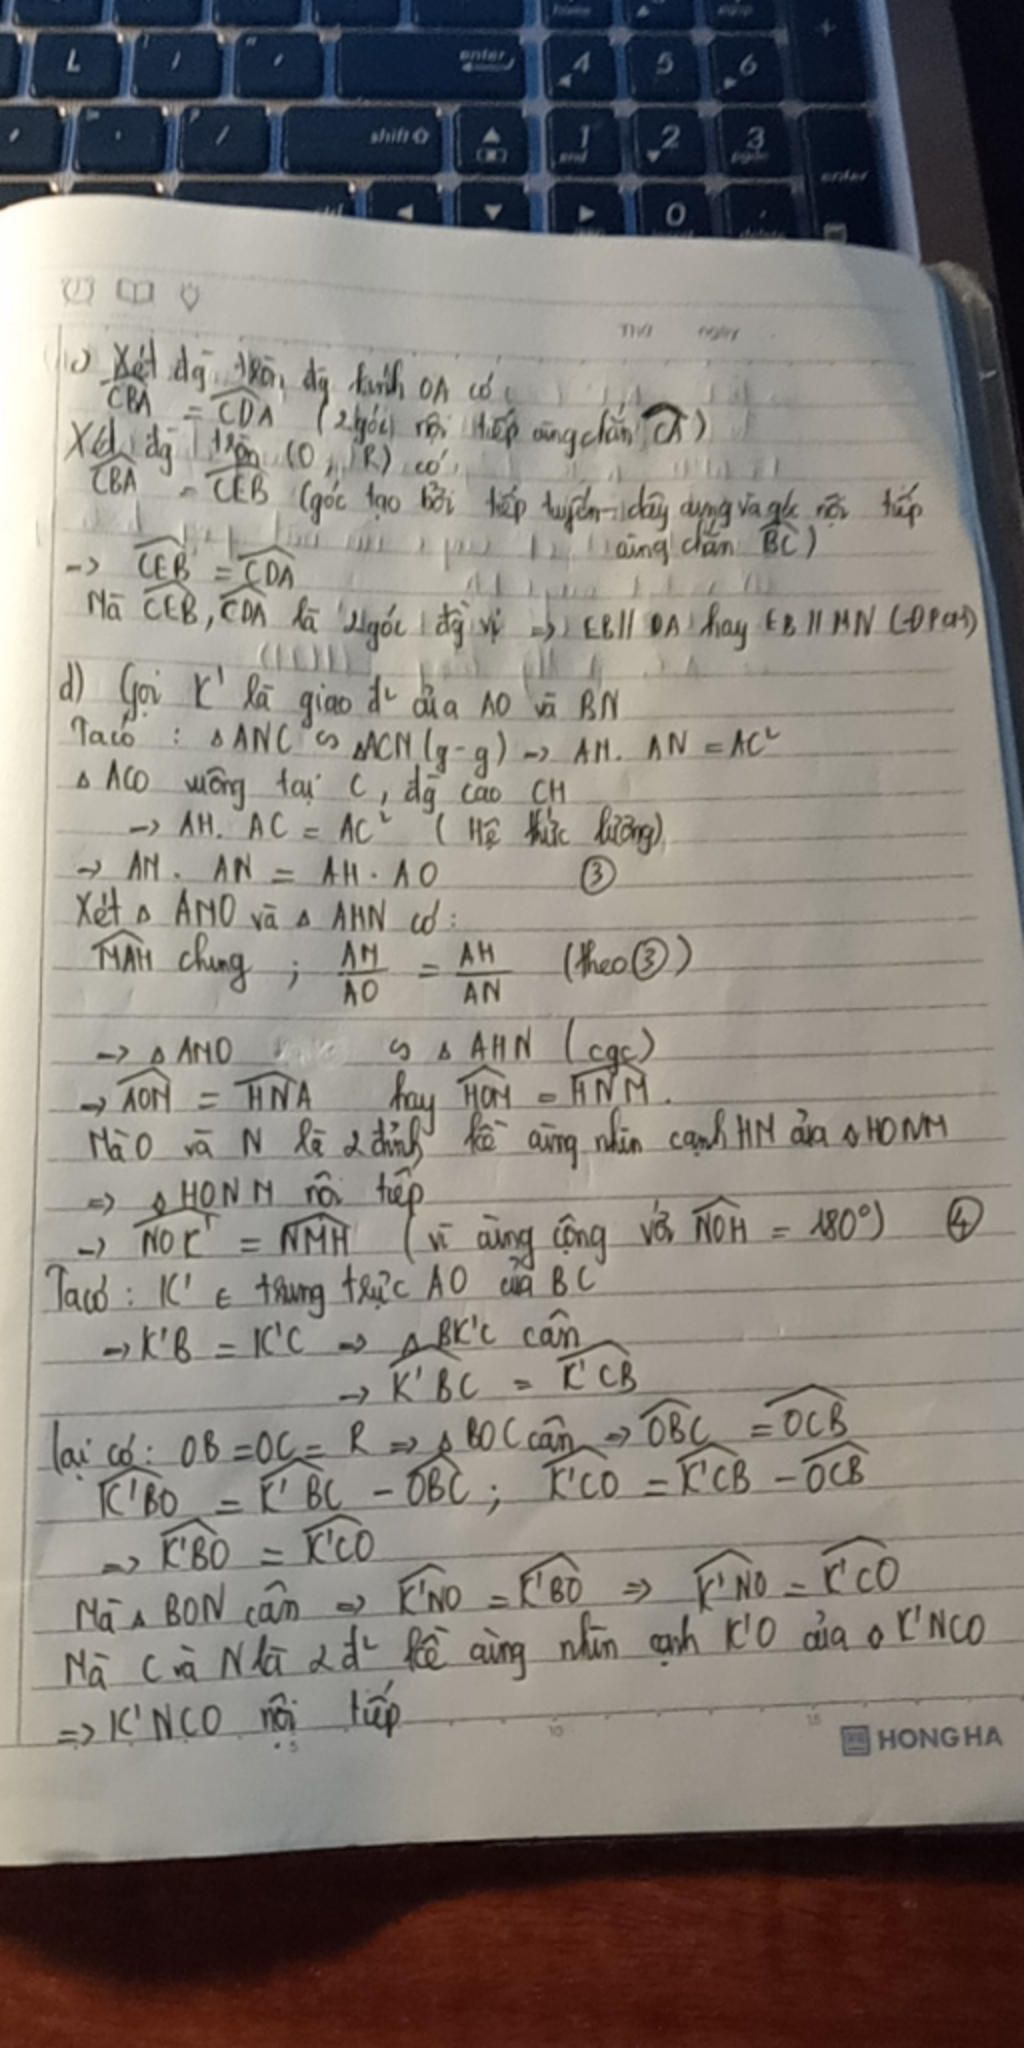 L
enter
4
5
6
shift
1
2
3
end
enter
0
Thứ ngày
c) Xét đg tròn, đg kính OA có
CBA = CDA (2 góc nội tiếp cùng chắn CA)
Xét đg tròn (O, R) có
CBA = CEB (góc tạo bởi tiếp tuyến-dây cung và góc nội tiếp
cùng chắn BC)
-> CEB = CDA
Mà CEB, CDA là 2 góc đg vị => EB // DA hay EB // MN (ĐPCM)
d) Gọi K' là giao đ' của AO và BN
Ta có : △ANC ∽ △ACM (g-g) -> AM. AN = AC²
△ ACO vuông tại C, đg cao CH
-> AH. AC = AC² (Hệ thức lượng)
-> AM . AN = AH . AO ③
Xét △ AMO và △ AHN có :
MAH chung ; AM/AO = AH/AN (theo ③)
-> △ AMO ∽ △ AHN (cgc)
-> AOM = HNA hay HOM = HNM.
Mà O và N là 2 đỉnh kề cùng nhìn cạnh HM của ◊ HONM
=> ◊ HONM nội tiếp
-> NOK' = NMH (vì cùng cộng với NOH = 180°) ④
Ta có : K' ∈ trung trực AO của BC
-> K'B = K'C => △ BK'C cân
-> K'BC = K'CB
lại có: OB = OC = R => △ BOC cân => OBC = OCB
K'BO = K'BC - OBC ; K'CO = K'CB - OCB
=> K'BO = K'CO
Mà △ BON cân => K'NO = K'BO => K'NO = K'CO
Mà C và N là 2 đ' kề cùng nhìn cạnh K'O của ◊ K'NCO
=> K'NCO nội tiếp
5 10 15
HONG HA